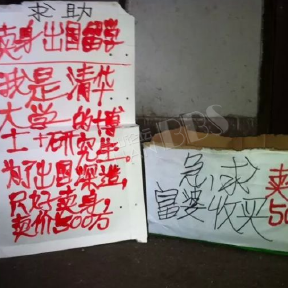 求助
卖身出国留学
我是清华
大学一的博
士+研究生。
为了出国深造,
只好卖身,
卖价500万
急,求
富婆收买
卖
50
BBS